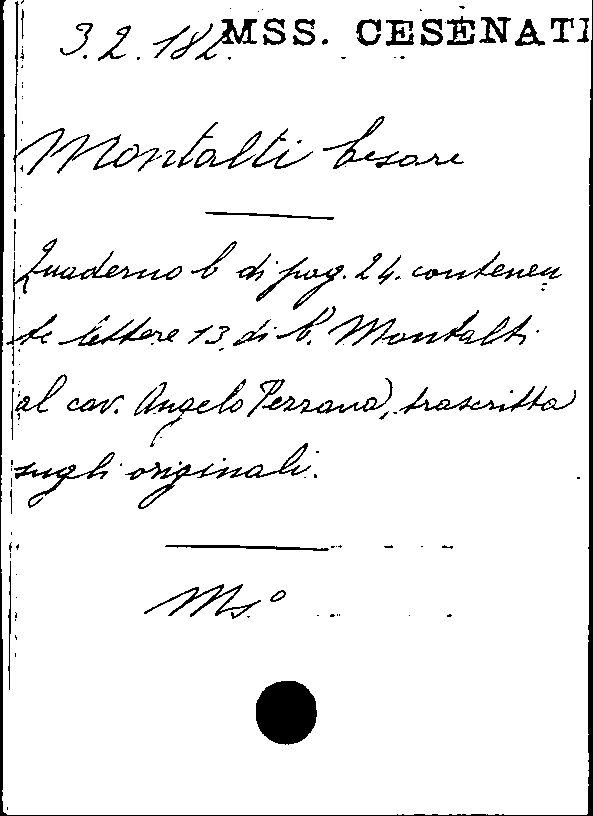 3.2.182. MSS. CESENATI
Montalti Cesare
Quaderno C di pag. 24. contenen
te lettere 13. di C. Montalti
al cav. Angelo Pezzana, trascritta
sugli originali.
Ms.º